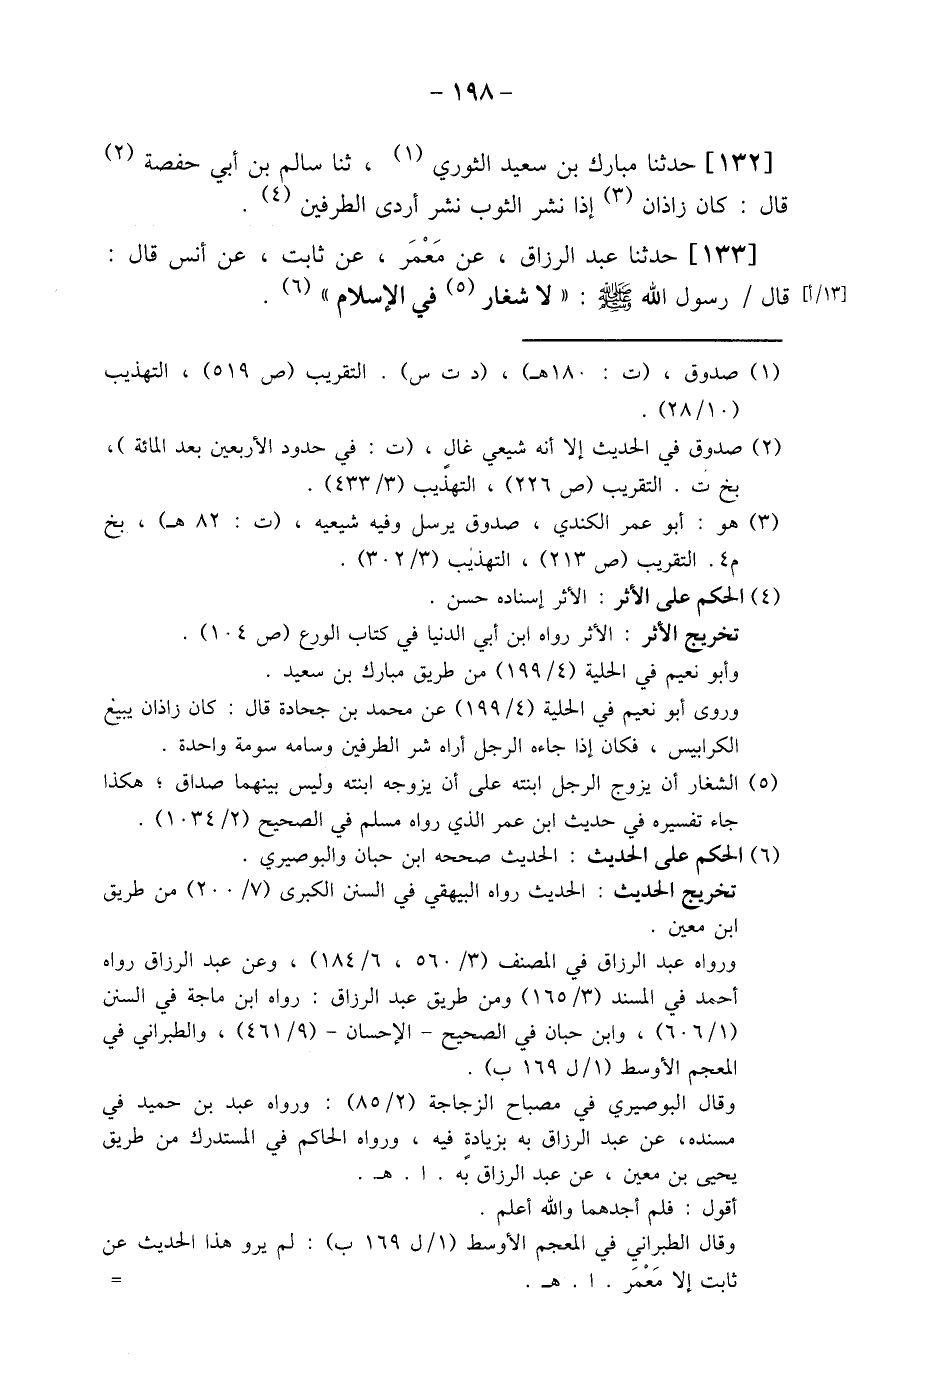 – ١٩٨ –
[١٣٢] حدثنا مبارك بن سعيد الثوري (١) ، ثنا سالم بن أبي حفصة (٢)
قال : كان زاذان (٣) إذا نشر الثوب نشر أردى الطرفين (٤) .
[١٣٣] حدثنا عبد الرزاق ، عن مَعْمَر ، عن ثابت ، عن أنس قال :
[١٣/أ] قال / رسول الله ﷺ : « لا شغار (٥) في الإسلام » (٦) .
(١) صدوق ، (ت : ١٨٠هـ) ، (د ت س) . التقريب (ص ٥١٩) ، التهذيب
(٢٨/١٠) .
(٢) صدوق في الحديث إلا أنه شيعي غالٍ ، (ت : في حدود الأربعين بعد المائة )،
بخ ت . التقريب (ص ٢٢٦) ، التهذيب (٤٣٣/٣) .
(٣) هو : أبو عمر الكندي ، صدوق يرسل وفيه شيعيه ، (ت : ٨٢ هـ) ، بخ
م٤. التقريب (ص ٢١٣) ، التهذيب (٣٠٢/٣) .
(٤) الحكم على الأثر : الأثر إسناده حسن .
تخريج الأثر : الأثر رواه ابن أبي الدنيا في كتاب الورع (ص ١٠٤) .
وأبو نعيم في الحلية (١٩٩/٤) من طريق مبارك بن سعيد .
وروى أبو نعيم في الحلية (١٩٩/٤) عن محمد بن جحادة قال : كان زاذان يبيع
الكرابيس ، فكان إذا جاءه الرجل أراه شر الطرفين وسامه سومة واحدة .
(٥) الشغار أن يزوج الرجل ابنته على أن يزوجه ابنته وليس بينهما صداق ؛ هكذا
جاء تفسيره في حديث ابن عمر الذي رواه مسلم في الصحيح (١٠٣٤/٢) .
(٦) الحكم على الحديث : الحديث صححه ابن حبان والبوصيري .
تخريج الحديث : الحديث رواه البيهقي في السنن الكبرى (٢٠٠/٧) من طريق
ابن معين .
ورواه عبد الرزاق في المصنف (٥٦٠/٣ ، ١٨٤/٦) ، وعن عبد الرزاق رواه
أحمد في المسند (١٦٥/٣) ومن طريق عبد الرزاق : رواه ابن ماجة في السنن
(٦٠٦/١) ، وابن حبان في الصحيح – الإحسان – (٤٦١/٩) ، والطبراني في
المعجم الأوسط (١/ل ١٦٩ ب) .
وقال البوصيري في مصباح الزجاجة (٨٥/٢) : ورواه عبد بن حميد في
مسنده، عن عبد الرزاق به بزيادةٍ فيه ، ورواه الحاكم في المستدرك من طريق
يحيى بن معين ، عن عبد الرزاق به . ا . هـ .
أقول : فلم أجدهما والله أعلم .
وقال الطبراني في المعجم الأوسط (١/ل ١٦٩ ب) : لم يرو هذا الحديث عن
ثابت إلا مَعْمَر . ا . هـ . =